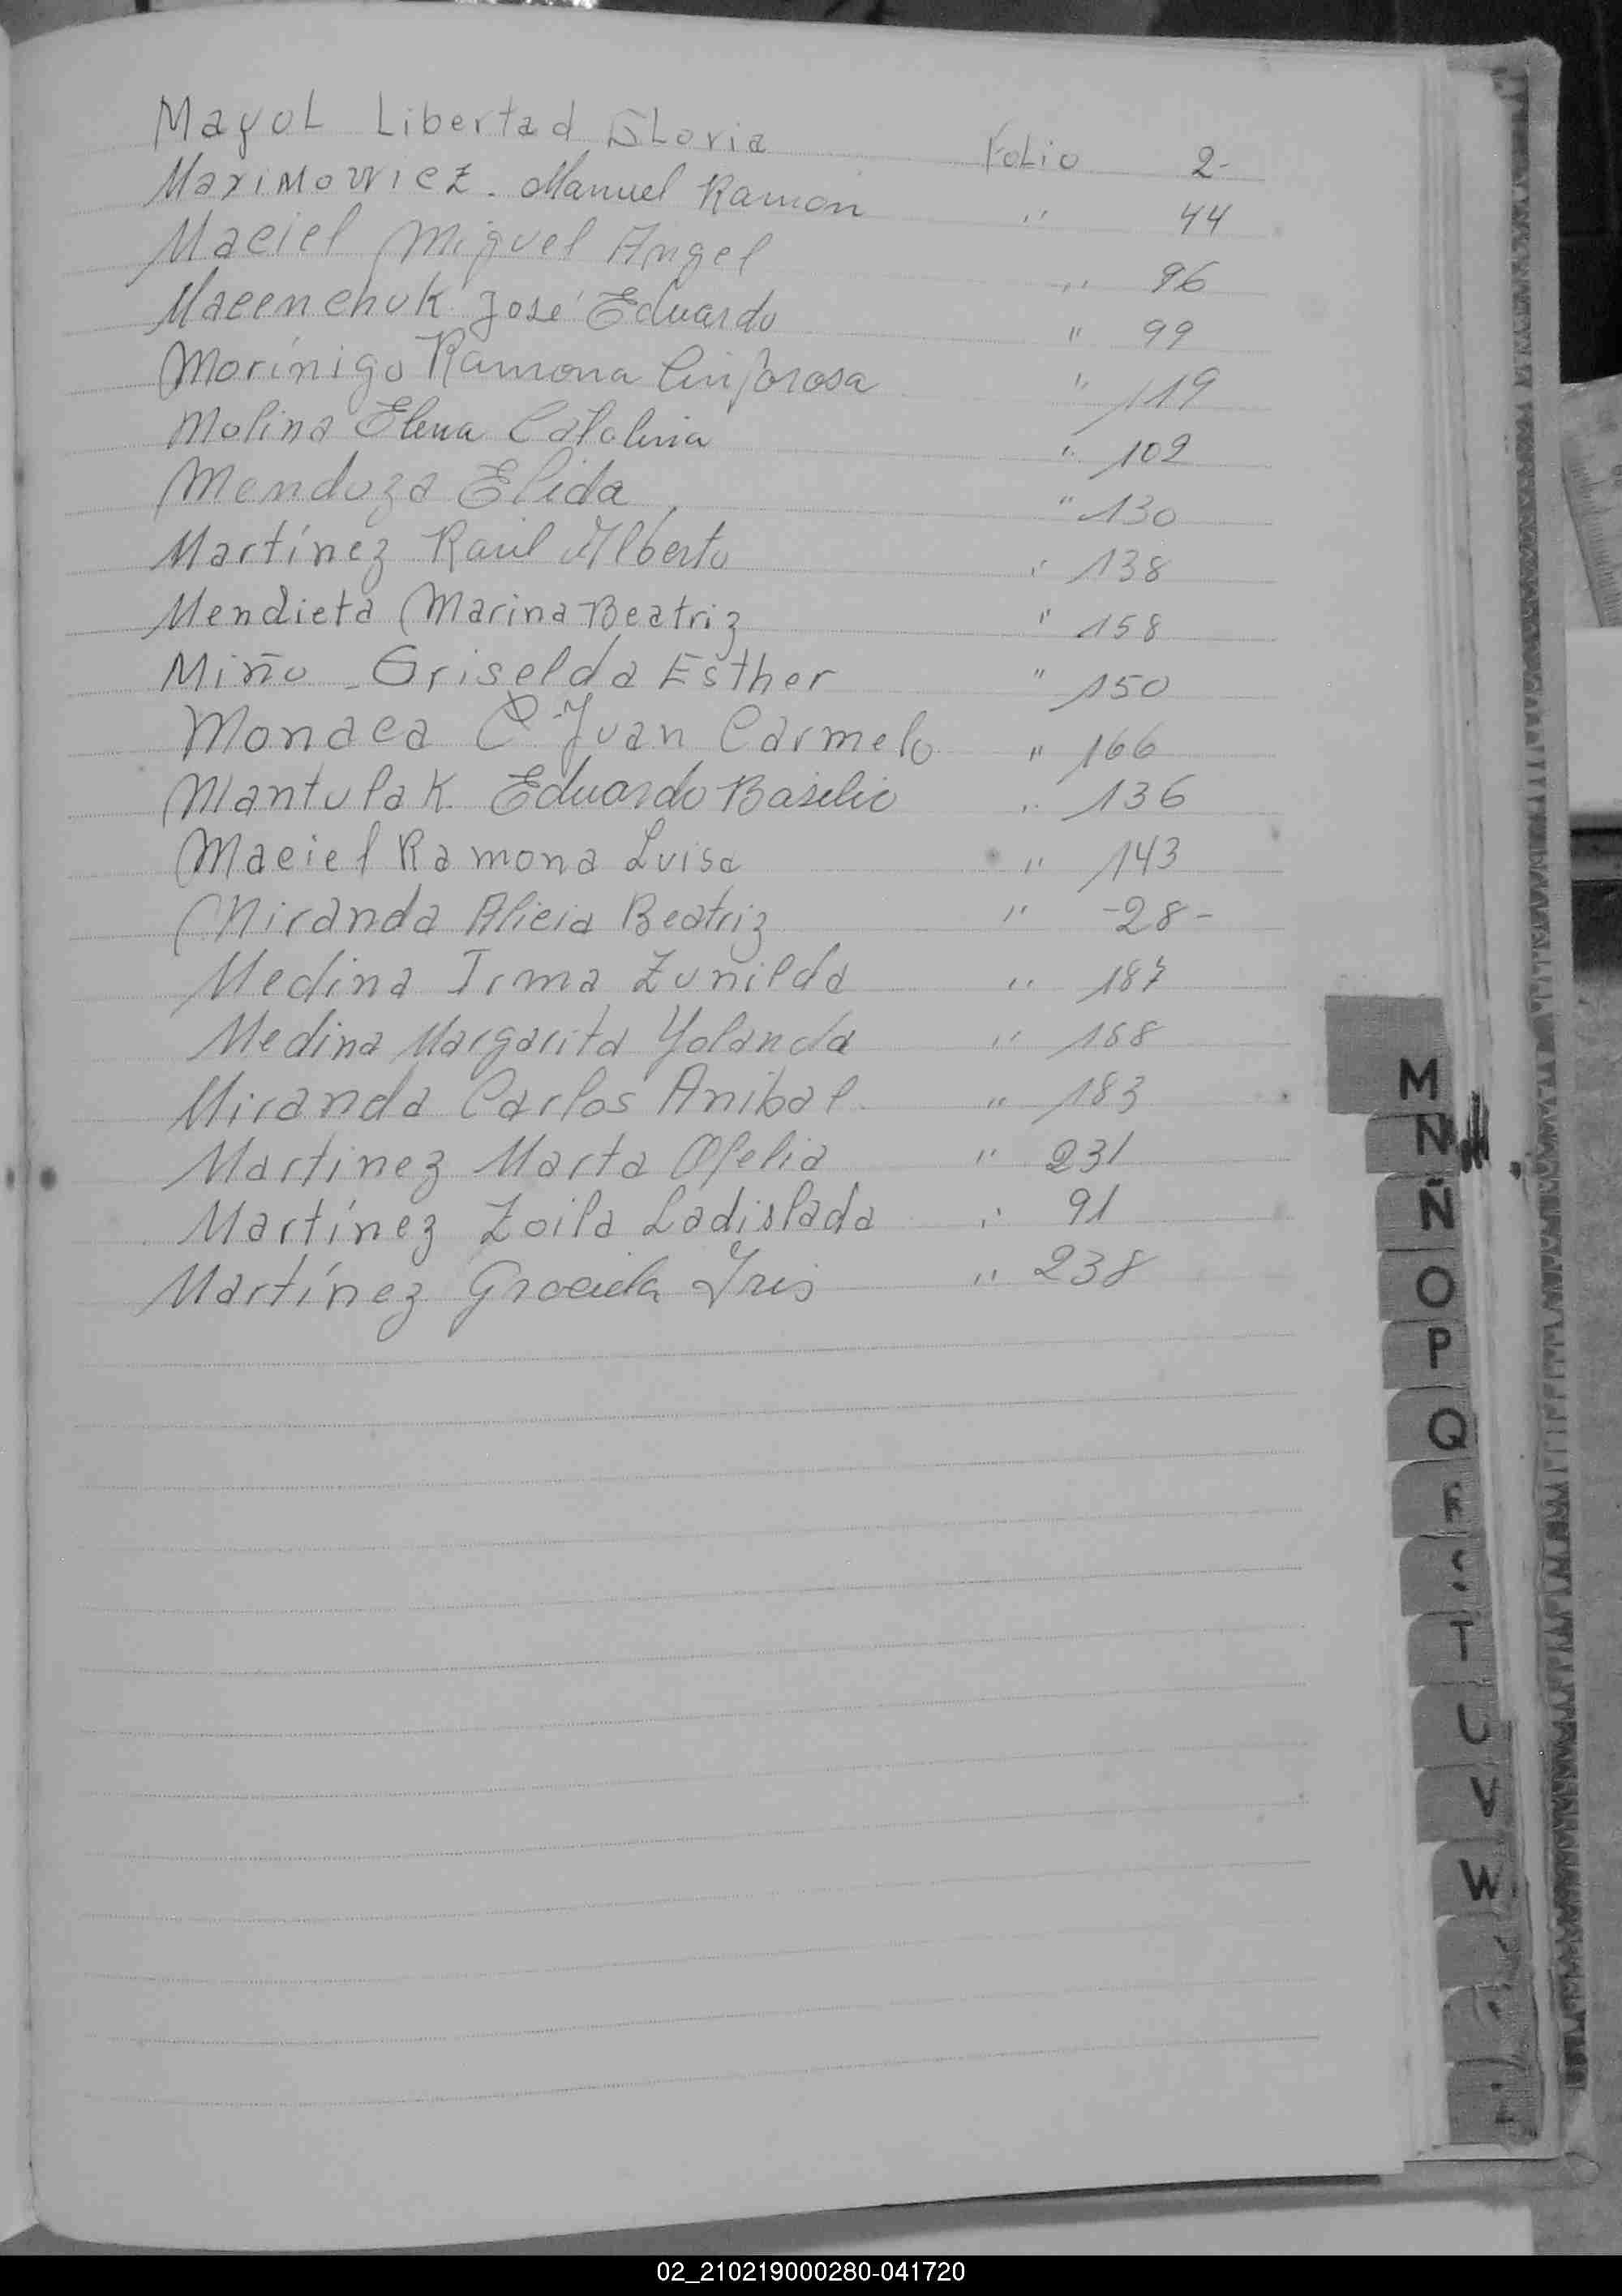 Mayol Libertad Gloria Folio 2-
Maximowicz. Manuel Ramon " 44
Maciel Miguel Angel " 96
Macenchuk José Eduardo " 99
Morínigo Ramona Cinforosa " 119
Molina Elena Catalina " 102
Mendoza Elida " 130
Martínez Raúl Alberto " 138
Mendieta Marina Beatriz " 158
Miño - Griselda Esther " 150
Monaca Juan Carmelo " 166
Mantulak Eduardo Basilio " 136
Maciel Ramona Luisa " 143
Miranda Alicia Beatriz " -28-
Medina Irma Zunilda " 187
Medina Margarita Yolanda " 188
Miranda Carlos Anibal " 183
Martinez Marta Ofelia " 231
Martínez Zoila Ladislada " 91
Martínez Graciela Iris " 238
M
N
Ñ
O
P
Q
R
S
T
U
V
W
02_210219000280-041720